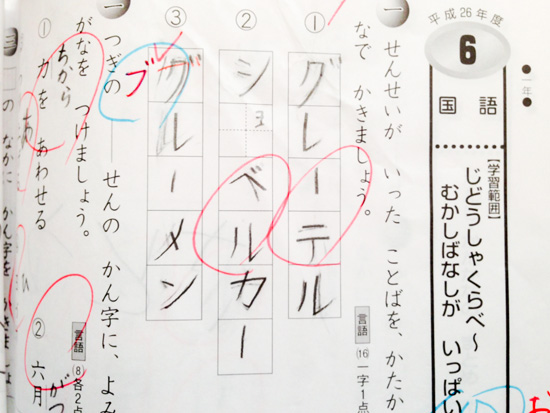 ●一年●
平成26年度
6
国語
【学習範囲】
じどうしゃくらべ〜
むかしばなしが いっぱい
一 せんせいが いった ことばを、かたか
なで かきましょう。
言語 (16) 一字1点
① グレーテル
② ショベルカー
③ グレーメン
ブ
一 つぎの ── せんの かん字に、よみ
がなを つけましょう。
言語 (8) 各2点
① 力を あわせる
ちから
② 六月
がつ
の なかに かん字を かきましょ